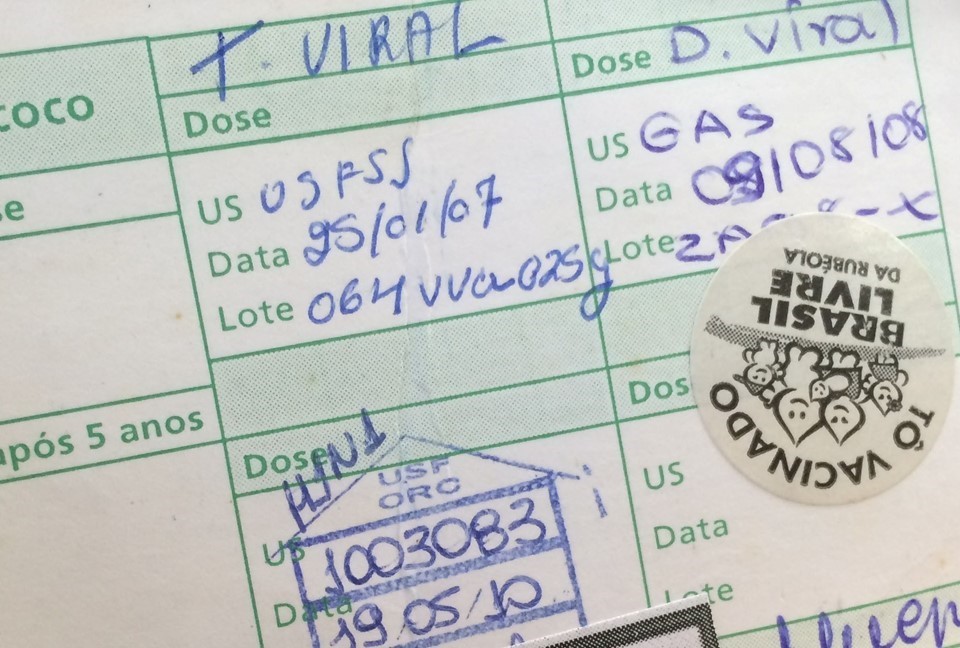 T. VIRAL
Dose
US USFSS
Data 25/01/07
Lote 064VVA025
Dose D. Viral
US GAS
Data 09/08/08
Lote
após 5 anos
Dose H1N1
USF
ORO
US 1003083
Data 19 05/10
US
Data
Lote
BRASIL
LIVRE
DA RUBÉOLA
TÔ VACINADO